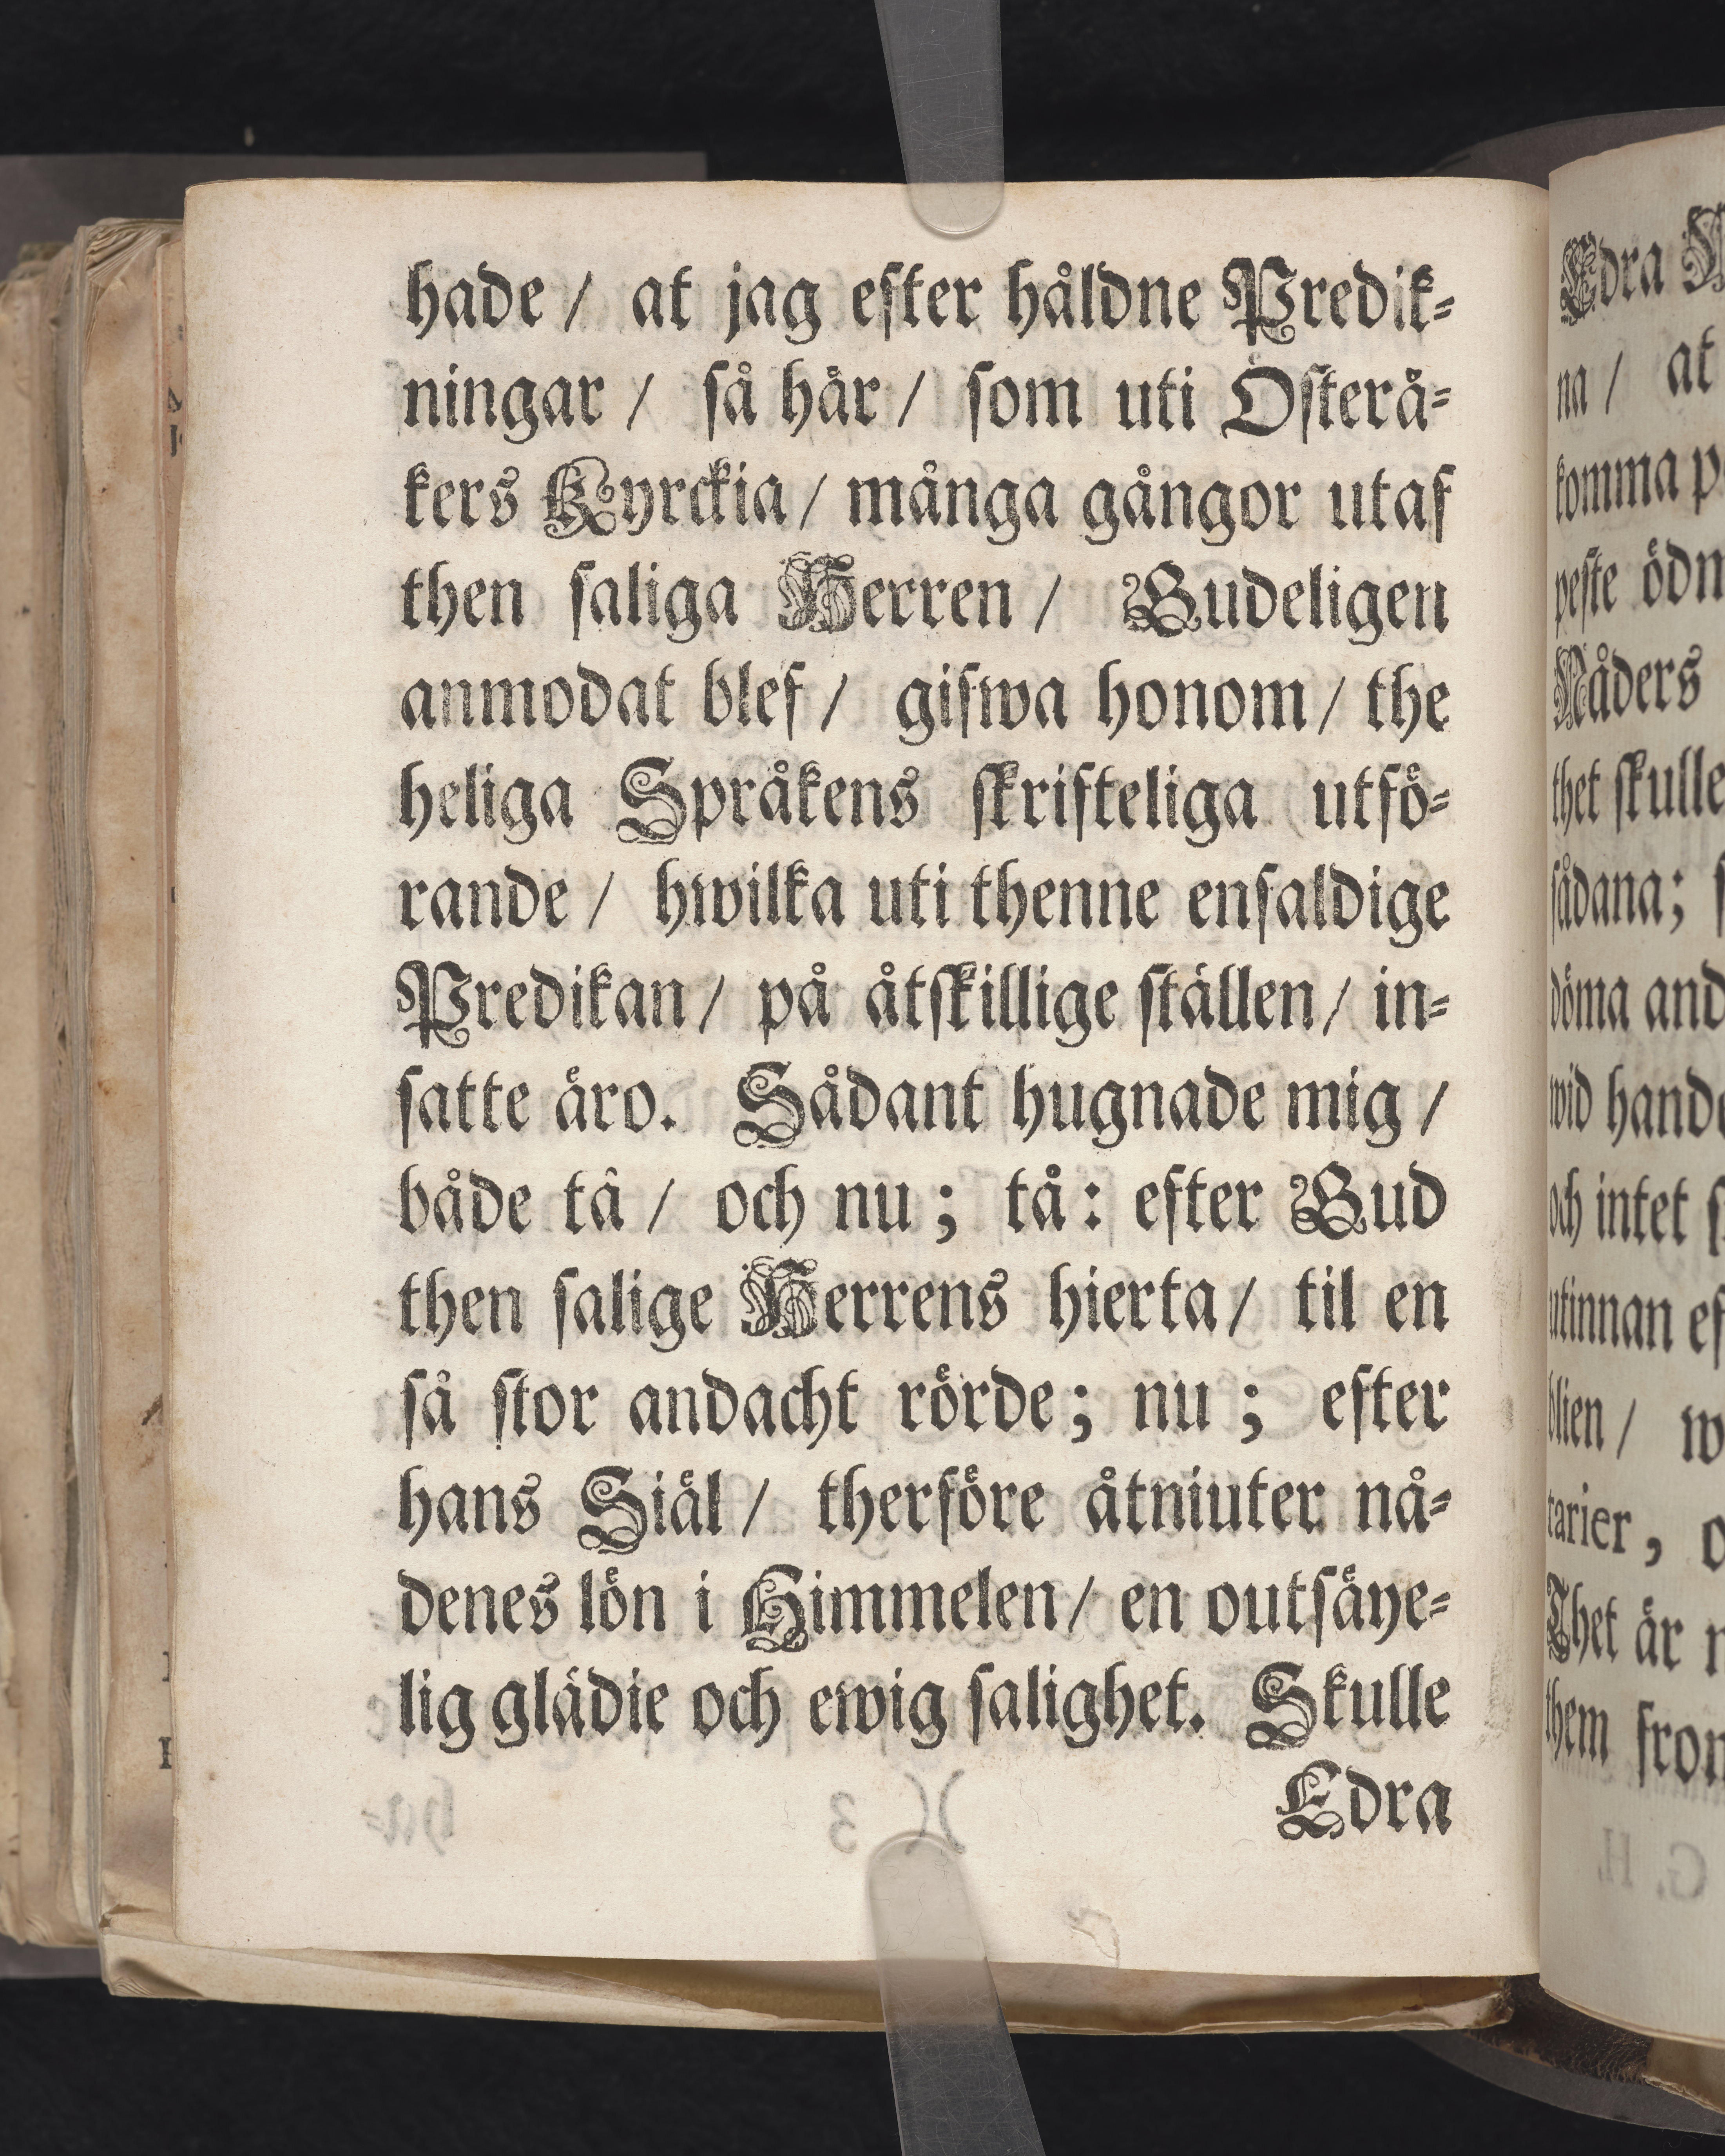 hade / at jag efter håldne Predik-
ningar / så hår / som uti Österå-
kers Kyrckia / många gångor utaf
then saliga Herren / Gudeligen
anmodat blef / gifwa honom / the
heliga Språkens skrifteliga utfö-
rande / hwilka uti thenne enfaldige
Predikan / på åtskillige ställen / in-
satte äro. Sådant hugnade mig /
både tå / och nu ; tå : efter Gud
then salige Herrens hierta / til en
så stor andacht rörde ; nu ; efter
hans Siäl / therföre åtniuter nå-
denes lön i Himmelen / en outsäye-
lig glädie och ewig salighet. Skulle
Edra
Edra
na / at
komma
peste
Nåders
thet skulle
sådana;
döma
wid
och intet
utinnan
blien /
tarier,
Thet är
them